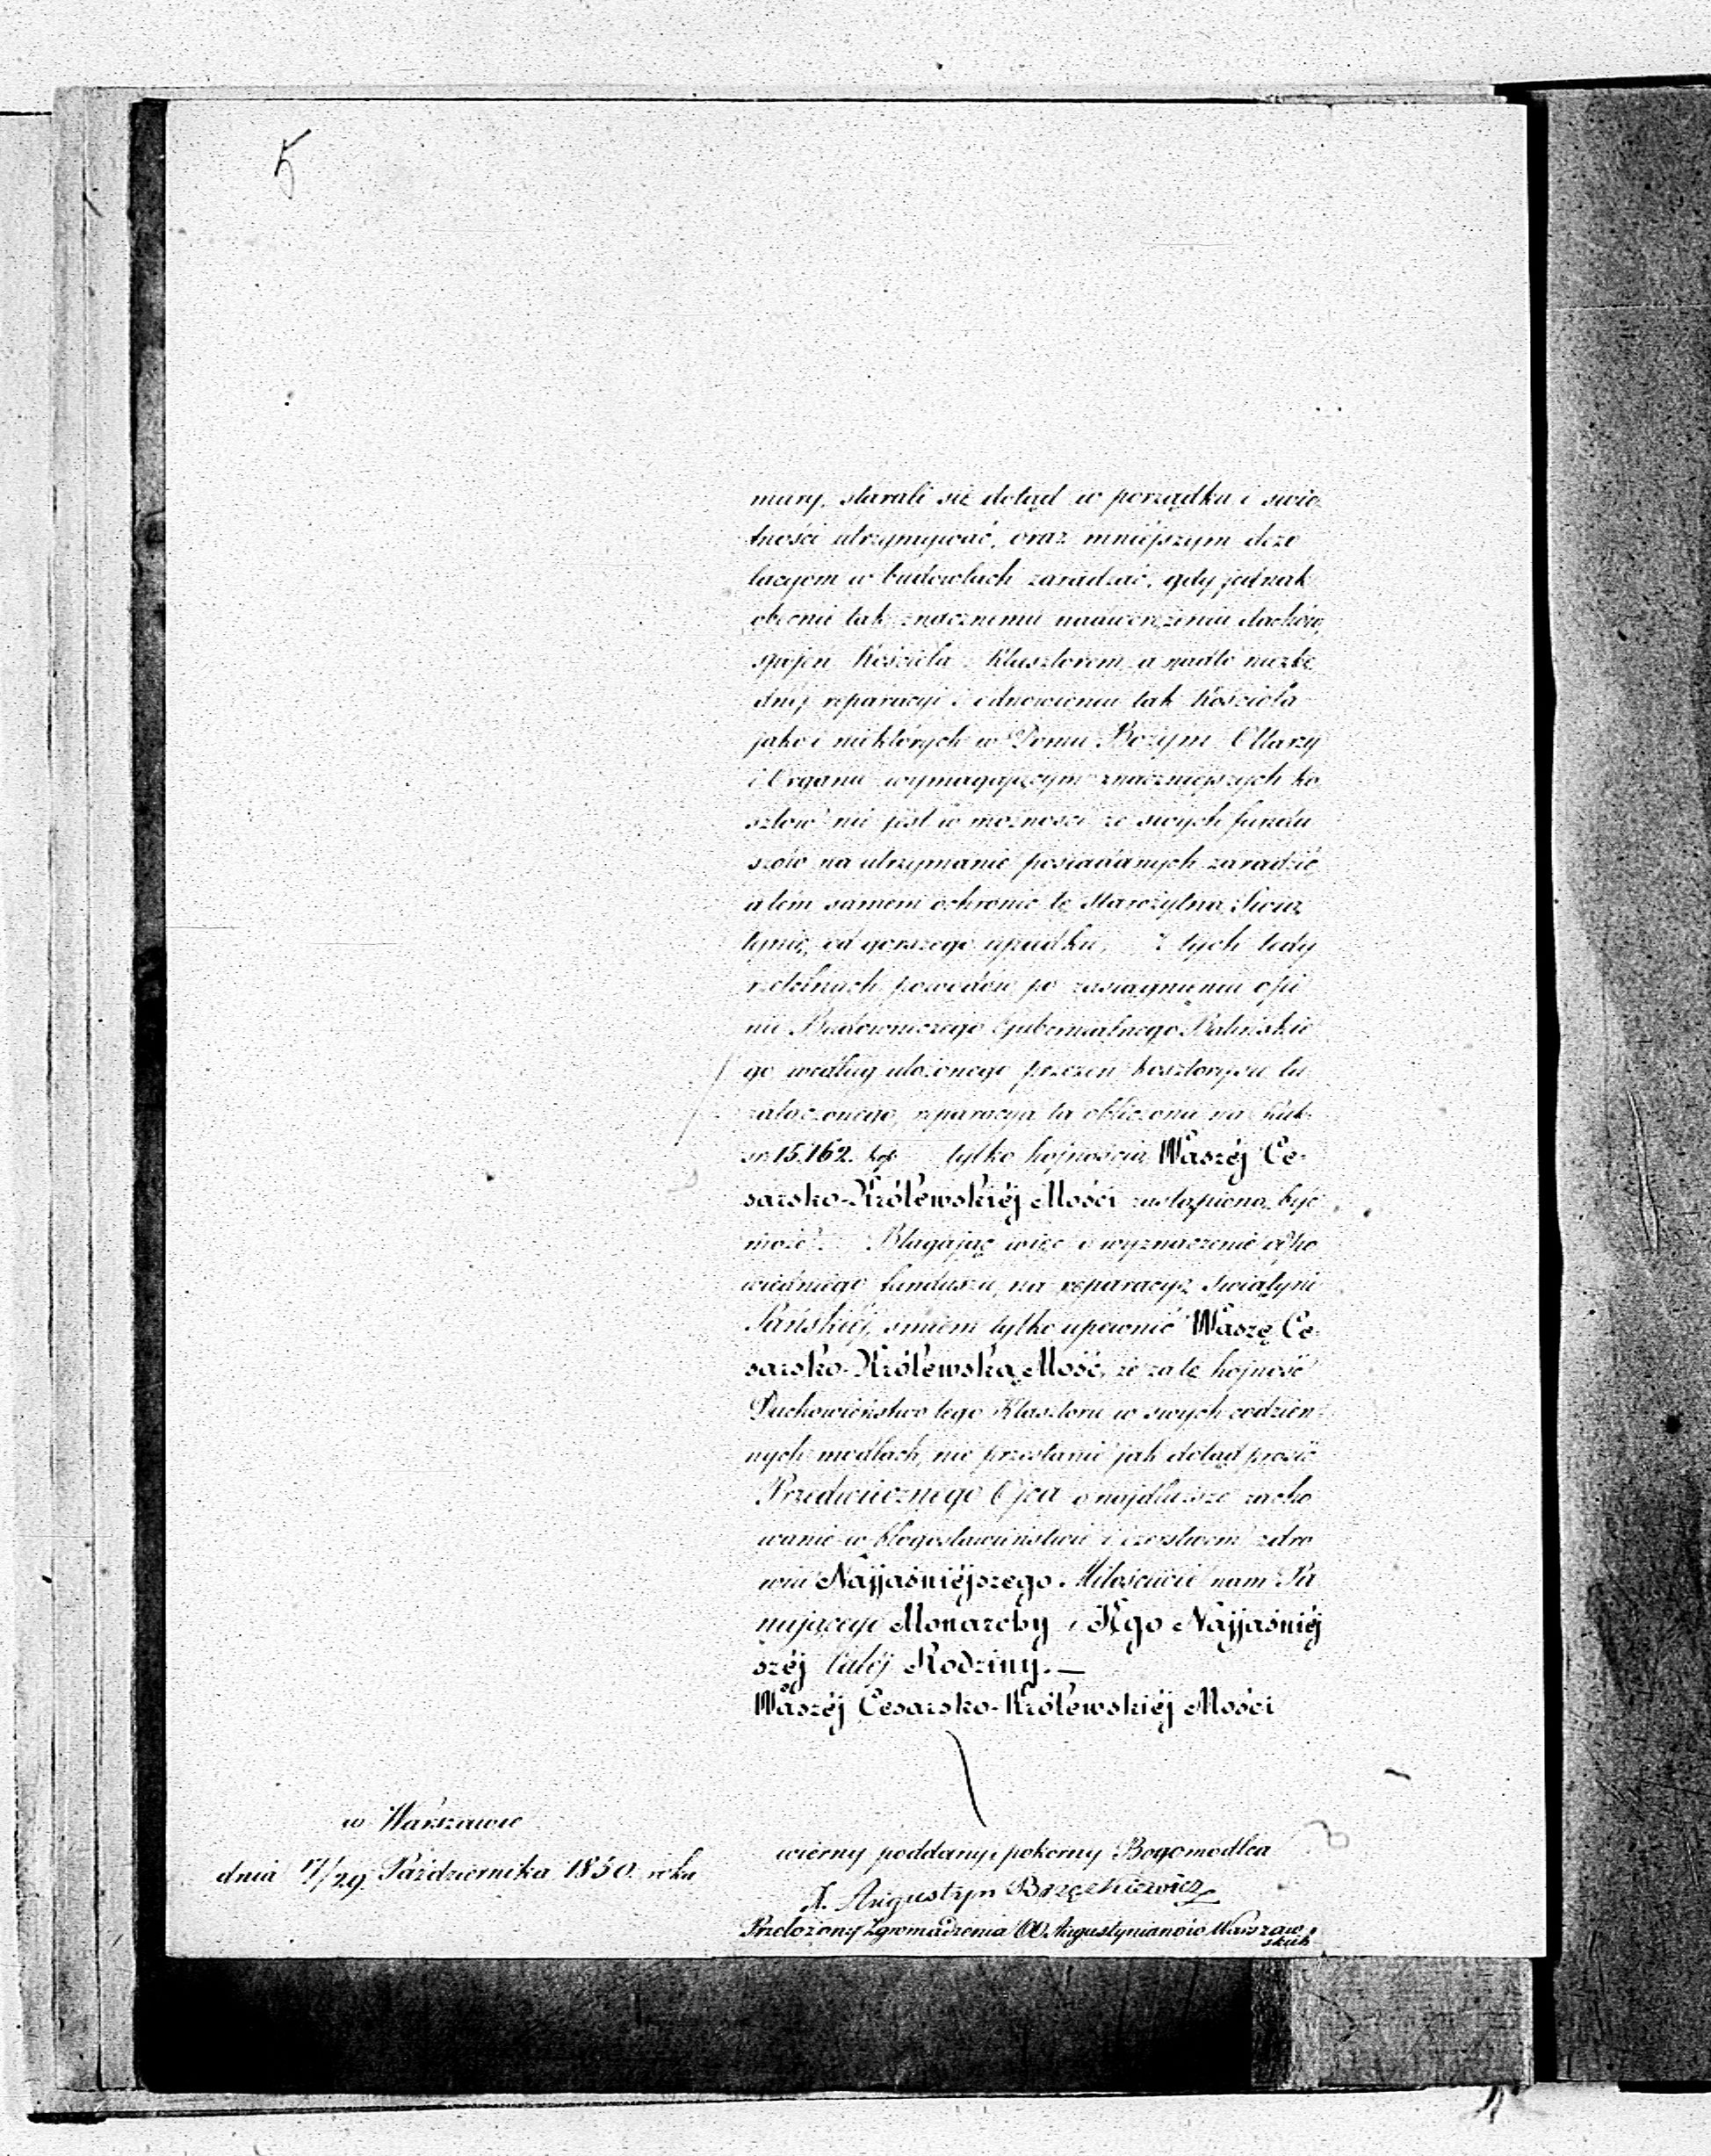 5
mury, starali się dotąd w porządku i swie-
tności utrzymywać, oraz mniéjszym dezo
lacyom w budowlach zaradzać, gdy jednak
obecnie tak znacznemu nadwerężeniu dachów,
spojeń Kościoła z Klasztorem, a nadto niezbę
dnéj reparacyi i odnowieniu tak Kościoła
jako i niektórych w Domu Bożym Ołtarzy
i Organu wymagającym znaczniejszych ko
sztów nie jest w możności ze swych fundu
szów na utrzymanie posiadanych zaradzić
a tém samem ochronić tę starożytną Swią
tynię od gorszego upadku. Z tych tedy
rzetelnych powodów po zasiągnieniu opi
nii Budowniczego Gubernialnego Balińskie
go według ułożonego przezeń kosztorysu tu
załączonego, reparacya ta obliczona na Rub.
sr. 15,162. kop tylko hojnością Waszéj Ce-
sarsko-Królewskiéj Mości zastąpiona być
może. Błagając więc o wyznaczenie odpo
wiedniego funduszu, na reparacyę Swiątyni
Pańskiéj, smiem tylko upewnić Waszę Ce-
sarsko-Królewską Mość, że za tę hojność
Duchowieństwo tego Klasztoru w swych codzien-
nych modłach, nie przestanie jak dotąd prosić
Przedwiecznego Ojca o najdłuższe zacho
wanie w błogosławieństwie i czerstwem zdro
wiu Najjaśniéjszego Miłościwie nam Pa
nującego Monarchy i Jego Najjaśniéj
széj Całéj Rodziny.—
Waszéj Cesarsko-Królewskiéj Mości
w Warszawie
dnia 17/29 Października 1850. roku
wierny poddany i pokorny Bogomodlca
X. Augustyn Brzęckiewicz
Przełożony Zgromadzenia OO. Augustynianów Warszaw-
skich